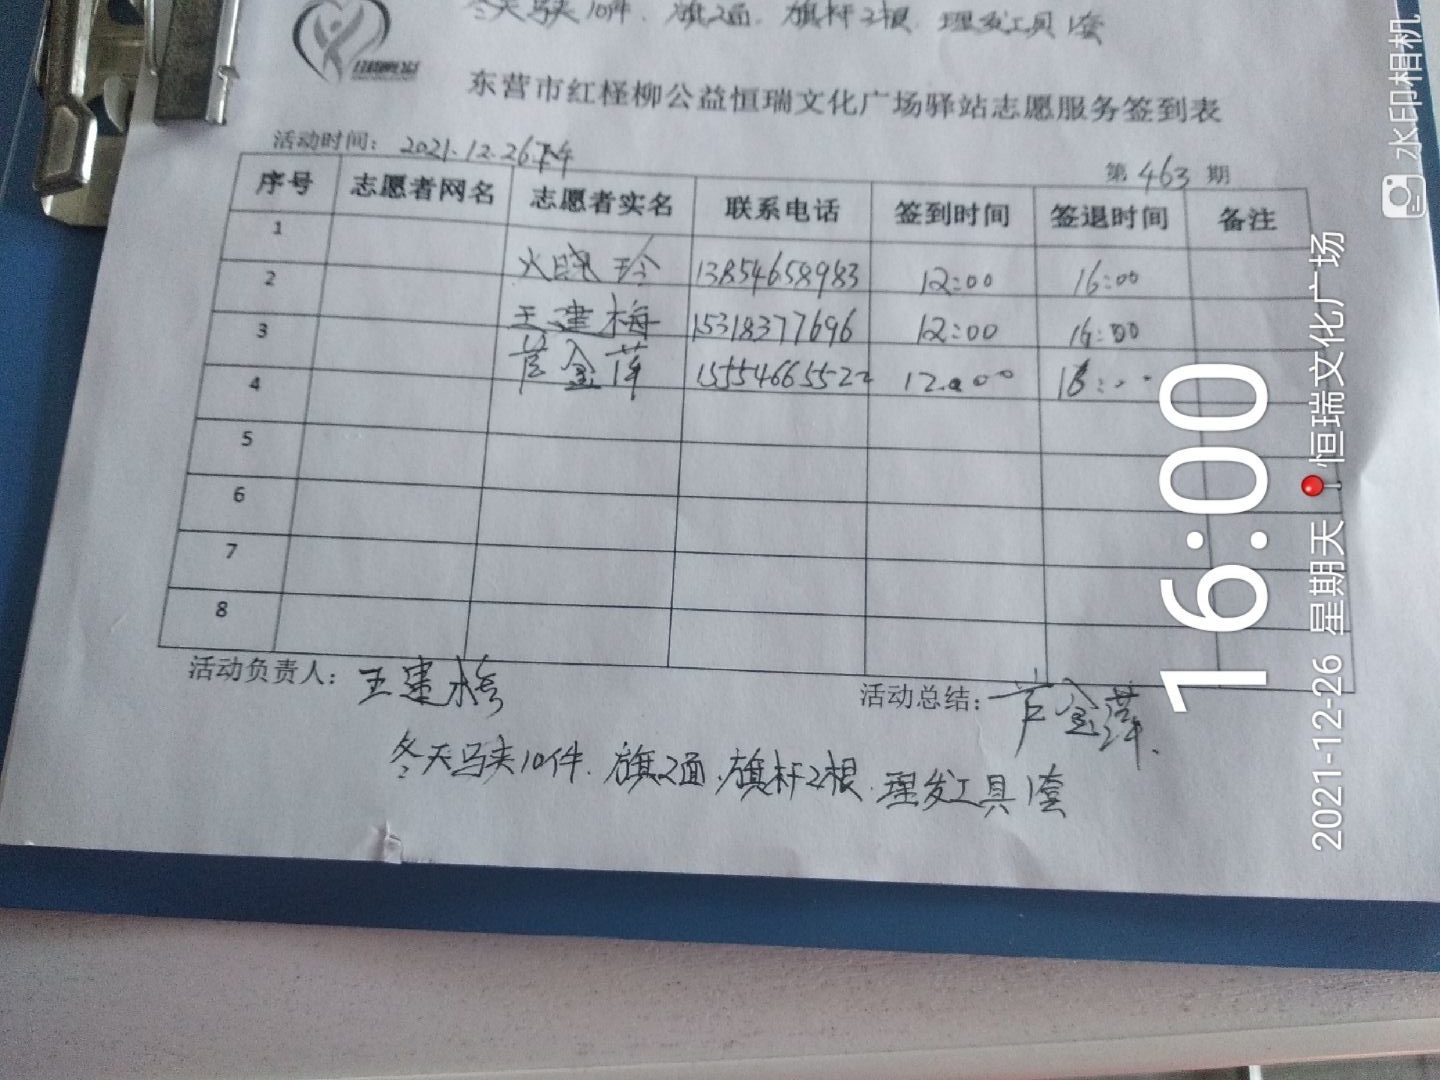 冬天马夹10件. 旗2面. 旗杆2根. 理发工具1套
东营市红柽柳公益恒瑞文化广场驿站志愿服务签到表
活动时间: 2021.12.26下午
第 463 期
序号 志愿者网名 志愿者实名 联系电话 签到时间 签退时间 备注
1 晓玲 13854658983 12:00 16:00
2 王建梅 15318377696 12:00 16:00
3 金萍 15554665522 12:00 16:00
4
5
6
7
8
活动负责人: 王建梅
活动总结: 金萍.
冬天马夹10件. 旗2面. 旗杆2根. 理发工具1套
16:00
2021-12-26 星期天 恒瑞文化广场
水印相机